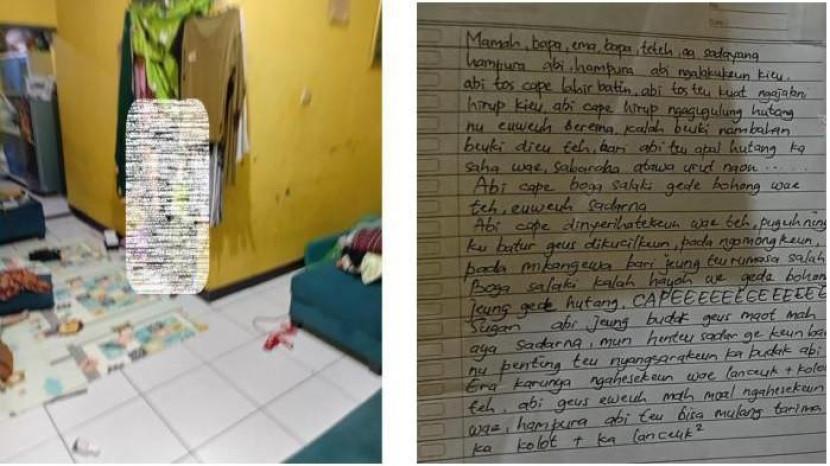 Mamah, bapa, ema, bapa, teteh, aa sadayana
hampura abi, hampura abi ngalakukeun kieu.
abi tos cape lahir batin, abi tos teu kuat ngajalan
hirup kieu, abi cape hirup ngagugulung hutang
nu euweuh beresna, kalah beuki nambahan
beuki dieu teh, bari abi teu apal hutang ka
saha wae, sabaraha atawa urut naon.....
Abi cape boga salaki gede bohong wae
teh, euweuh sadarna
Abi cape dinyerihatekeun wae teh, puguh ning
ku batur geus dikucilkeun, pada ngomongkeun,
pada mikangewa bari jeung teu rumasa salah
Boga salaki kalah hayoh we gede bohon
jeung gede hutang, CAPEEEEEEEEEEEEEE
Sugan abi jeung budak geus maot mah
aya sadarna, mun henteu sadar ge keun ba
nu penting teu nyangsarakeun ka budak abi
Era karunya ngahesekeun wae lanceuk + kolo
teh, abi geus euweuh mah moal ngahesekeun
wae, hampura abi teu bisa mulang tarima
ka kolot + ka lanceuk²